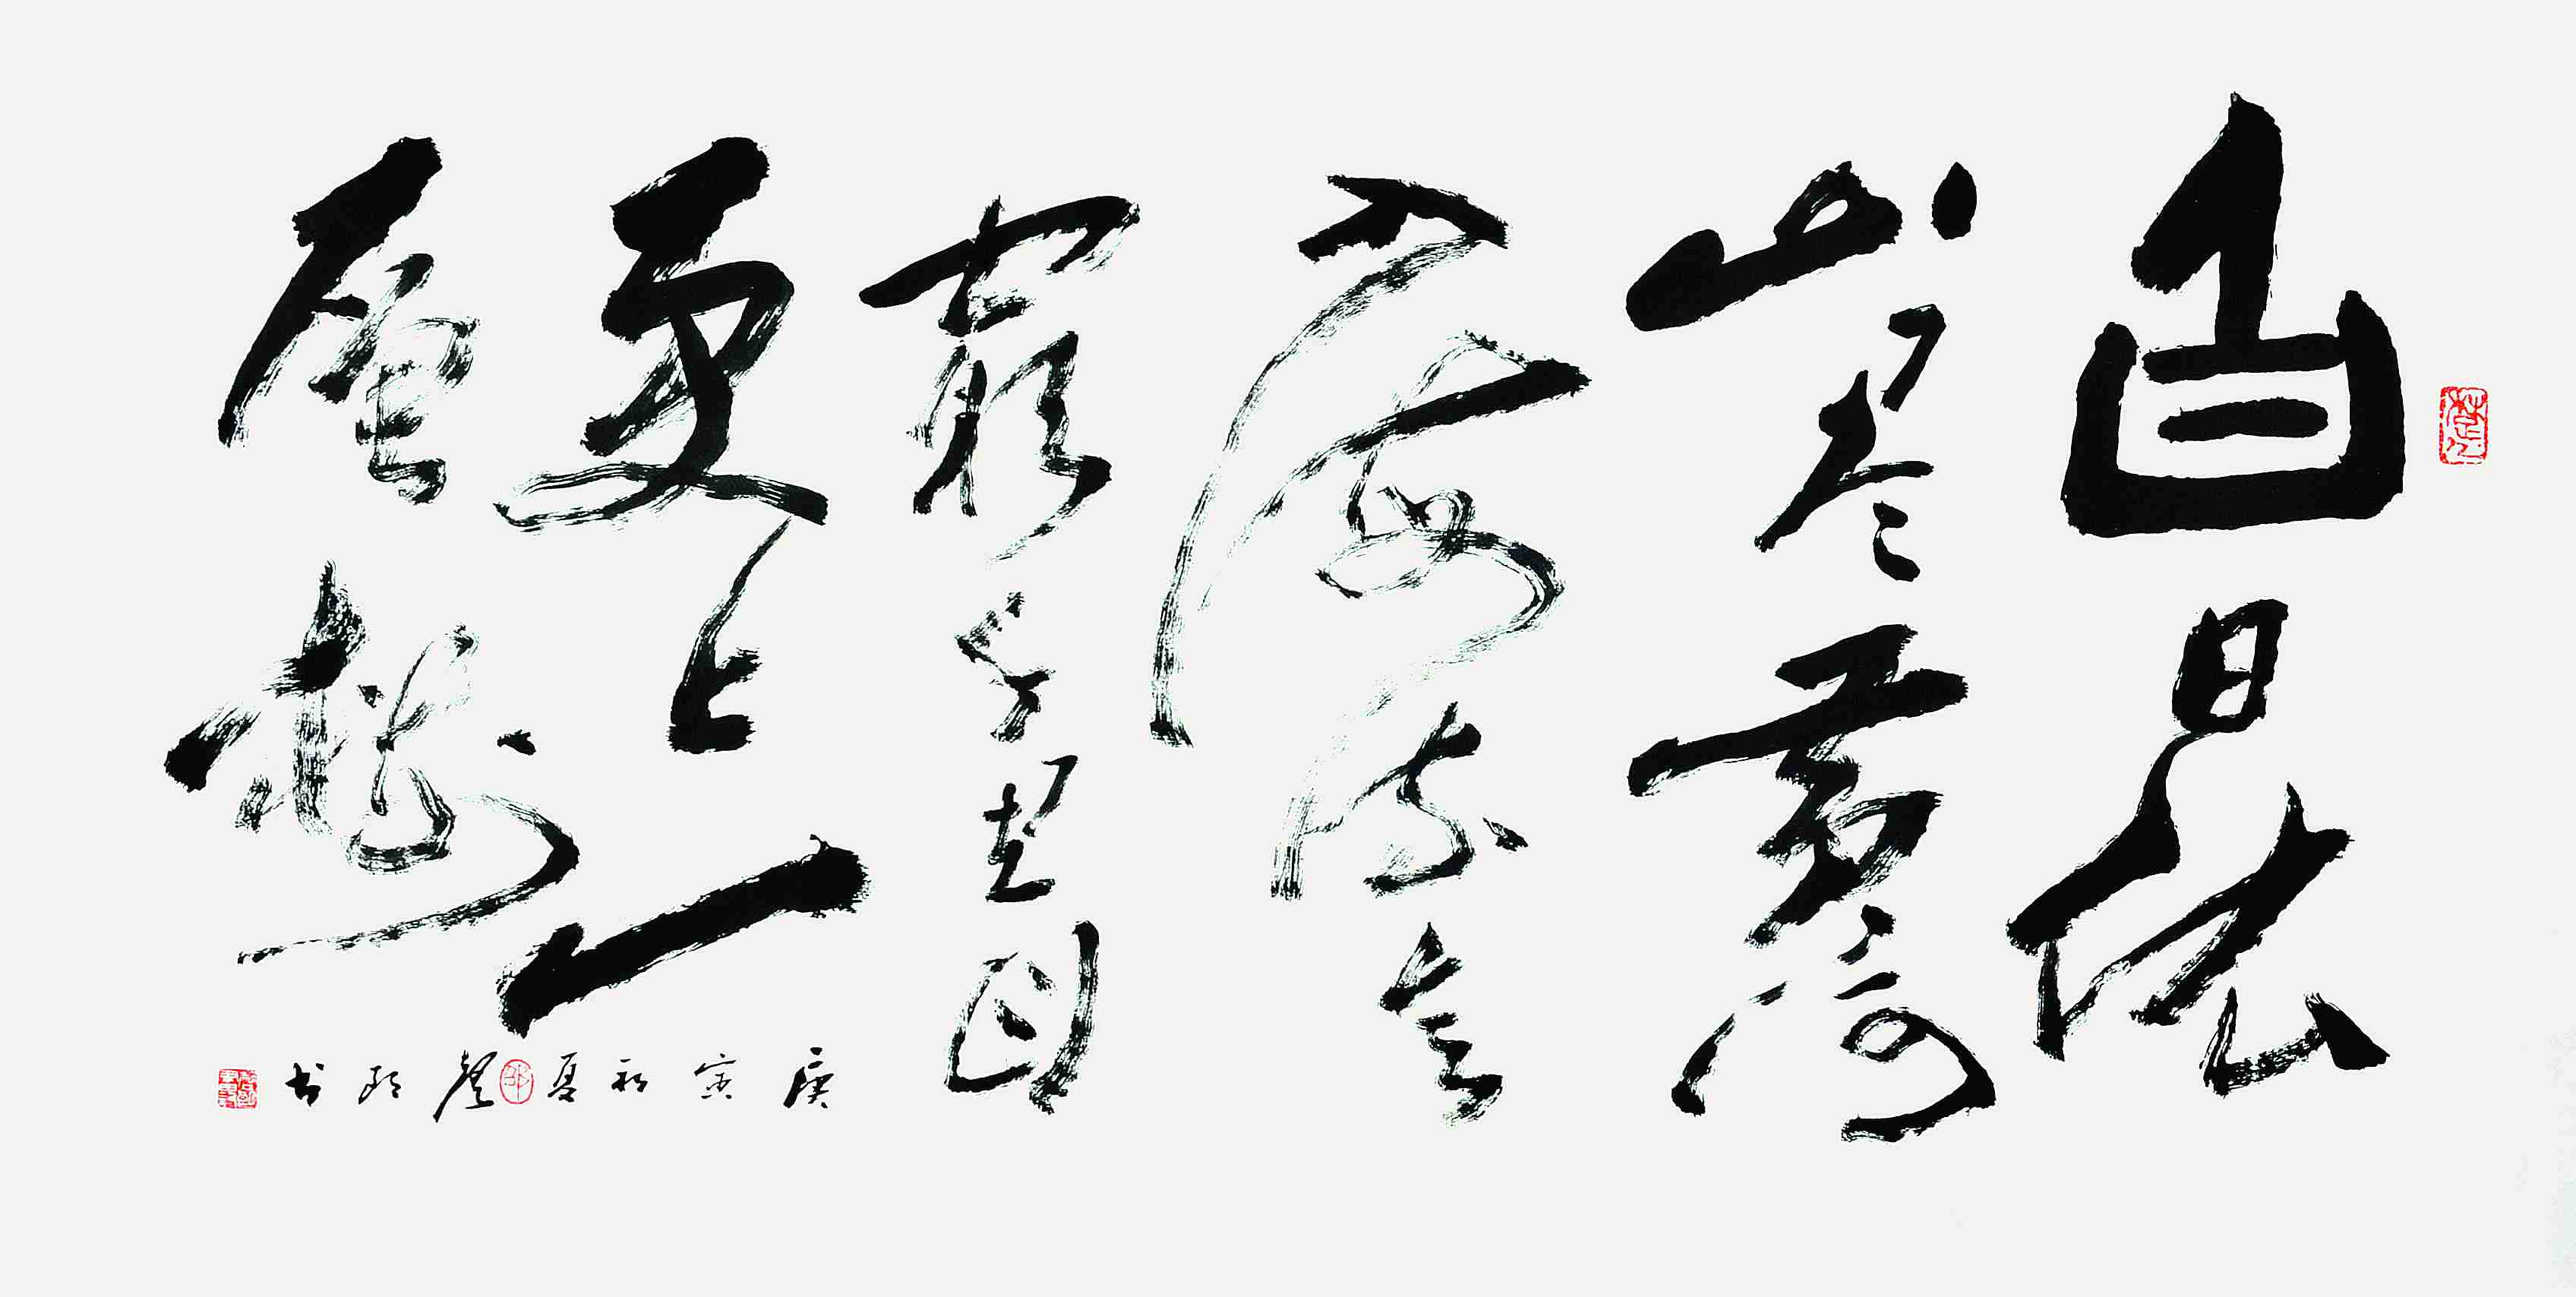 白日依
山尽黄河
入海流欲
窮千里目
更上一
層樓
庚寅初夏书